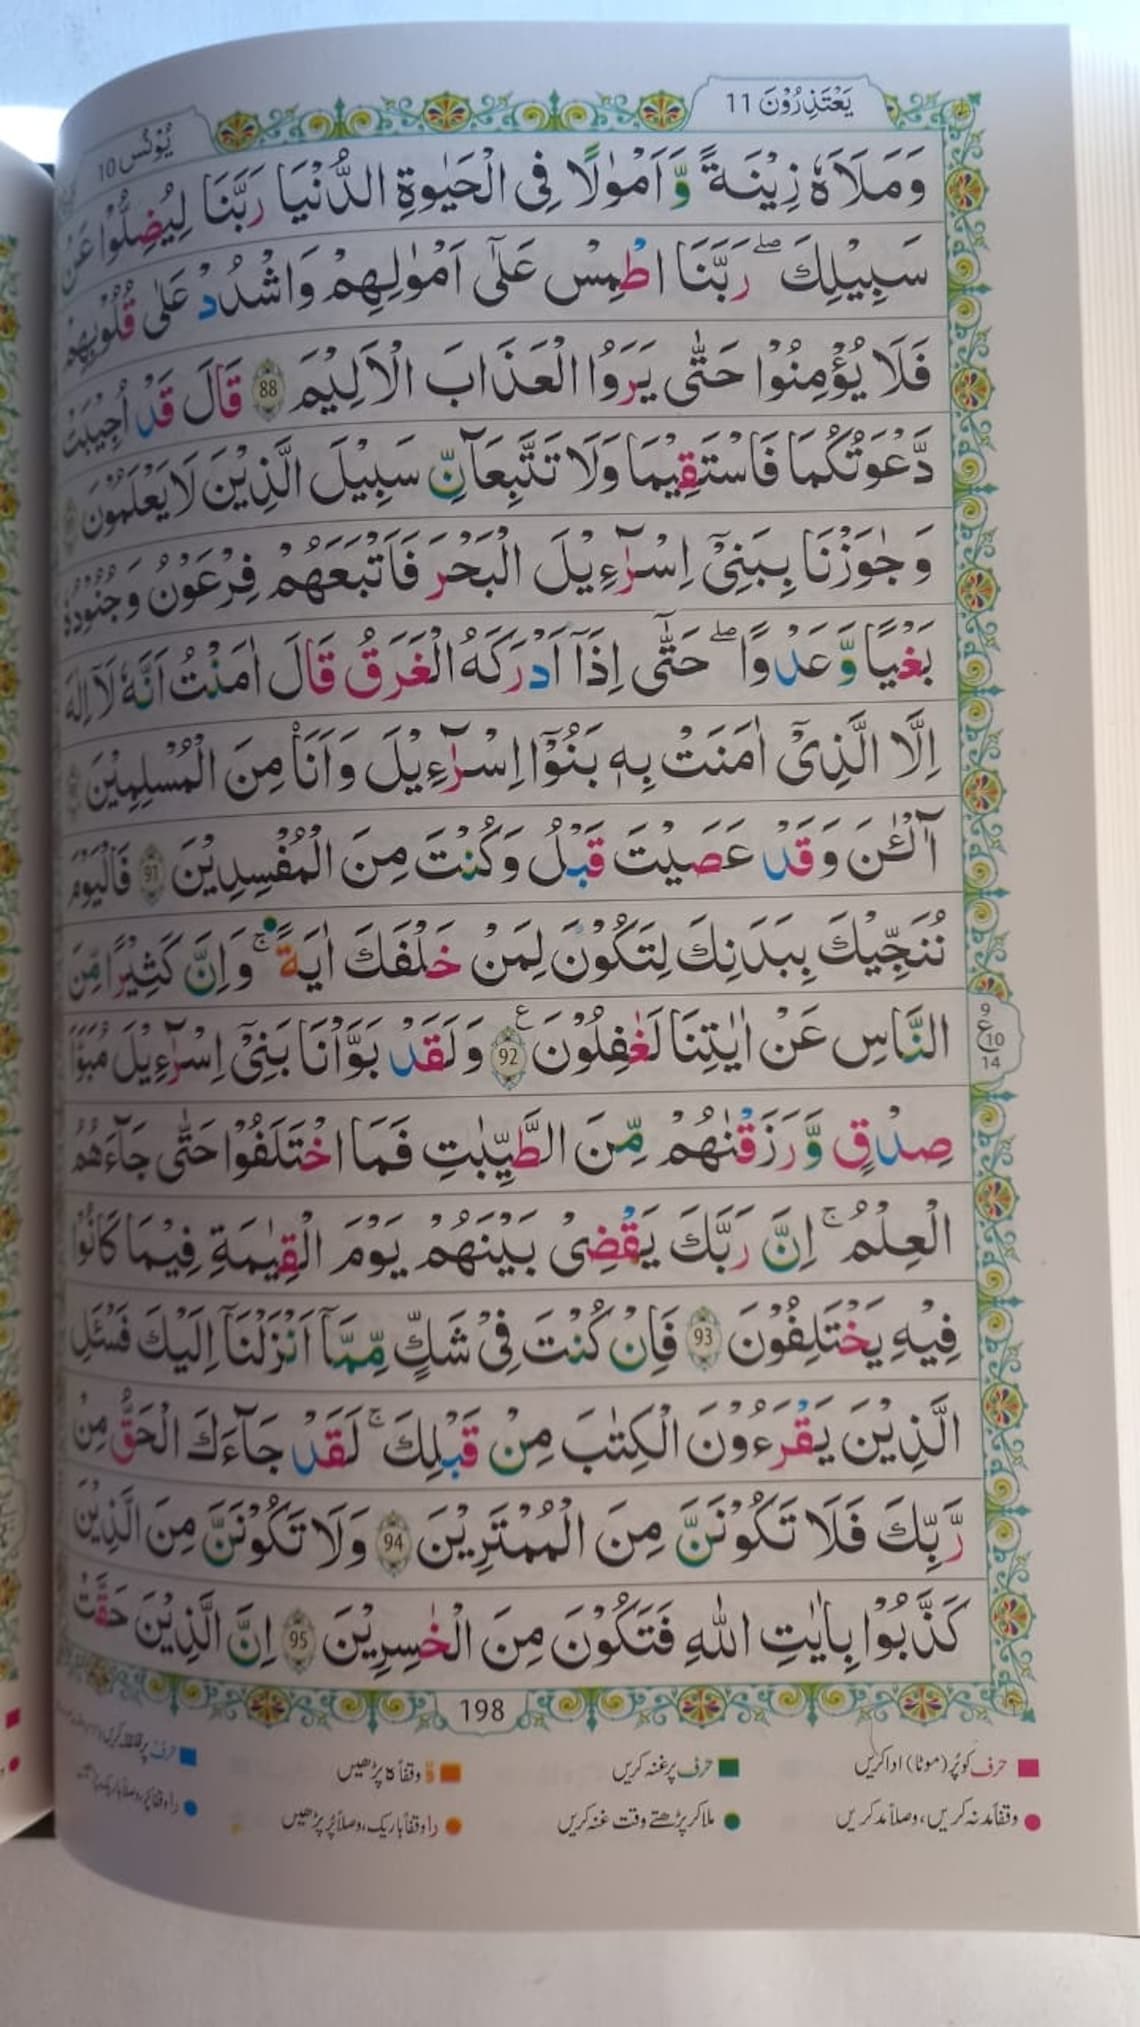 يَعْتَذِرُوْنَ 11
يُوْنُس 10
وَمَلَاَهٗ زِيْنَةً وَّاَمْوٰلًا فِى الْحَيٰوةِ الدُّنْيَا رَبَّنَا لِيُضِلُّوْا عَنْ
سَبِيْلِكَ ۖ رَبَّنَا اطْمِسْ عَلٰٓى اَمْوٰلِهِمْ وَاشْدُدْ عَلٰى قُلُوْبِهِمْ
فَلَا يُؤْمِنُوْا حَتّٰى يَرَوُا الْعَذَابَ الْاَلِيْمَ 88 قَالَ قَدْ اُجِيْبَتْ
دَّعْوَتُكُمَا فَاسْتَقِيْمَا وَلَا تَتَّبِعَآنِّ سَبِيْلَ الَّذِيْنَ لَا يَعْلَمُوْنَ
وَجٰوَزْنَا بِبَنِىْٓ اِسْرَٰٓءِيْلَ الْبَحْرَ فَاَتْبَعَهُمْ فِرْعَوْنُ وَجُنُوْدُهٗ
بَغْيًا وَّعَدْوًا ۖ حَتّٰٓى اِذَآ اَدْرَكَهُ الْغَرَقُ قَالَ اٰمَنْتُ اَنَّهٗ لَآ اِلٰهَ
اِلَّا الَّذِىْٓ اٰمَنَتْ بِهٖ بَنُوْٓا اِسْرَٰٓءِيْلَ وَاَنَا۠ مِنَ الْمُسْلِمِيْنَ
آٰلْـٰٔنَ وَقَدْ عَصَيْتَ قَبْلُ وَكُنْتَ مِنَ الْمُفْسِدِيْنَ 91 فَالْيَوْمَ
نُنَجِّيْكَ بِبَدَنِكَ لِتَكُوْنَ لِمَنْ خَلْفَكَ اٰيَةً ۚ وَاِنَّ كَثِيْرًا مِّنَ
النَّاسِ عَنْ اٰيٰتِنَا لَغٰفِلُوْنَ ع 92 وَلَقَدْ بَوَّاْنَا بَنِىْٓ اِسْرَٰٓءِيْلَ مُبَوَّاَ
9
ع 10
14
صِدْقٍ وَّرَزَقْنٰهُمْ مِّنَ الطَّيِّبٰتِ فَمَا اخْتَلَفُوْا حَتّٰى جَآءَهُمُ
الْعِلْمُ ۚ اِنَّ رَبَّكَ يَقْضِىْ بَيْنَهُمْ يَوْمَ الْقِيٰمَةِ فِيْمَا كَانُوْا
فِيْهِ يَخْتَلِفُوْنَ 93 فَاِنْ كُنْتَ فِىْ شَكٍّ مِّمَّآ اَنْزَلْنَآ اِلَيْكَ فَسْـَٔلِ
الَّذِيْنَ يَقْرَءُوْنَ الْكِتٰبَ مِنْ قَبْلِكَ ۚ لَقَدْ جَآءَكَ الْحَقُّ مِنْ
رَّبِّكَ فَلَا تَكُوْنَنَّ مِنَ الْمُمْتَرِيْنَ 94 وَلَا تَكُوْنَنَّ مِنَ الَّذِيْنَ
كَذَّبُوْا بِاٰيٰتِ اللّٰهِ فَتَكُوْنَ مِنَ الْخٰسِرِيْنَ 95 اِنَّ الَّذِيْنَ حَقَّتْ
198
حرف کو پُر (موٹا) ادا کریں
حرف پر غنہ کریں
ۃ وقفاً ہ پڑھیں
حرف پر قلقلہ کریں
وقفاً مد نہ کریں، وصلاً مد کریں
ملا کر پڑھتے وقت غنہ کریں
را وقفاً باریک، وصلاً پُر پڑھیں
را وقفاً پُر، وصلاً باریک